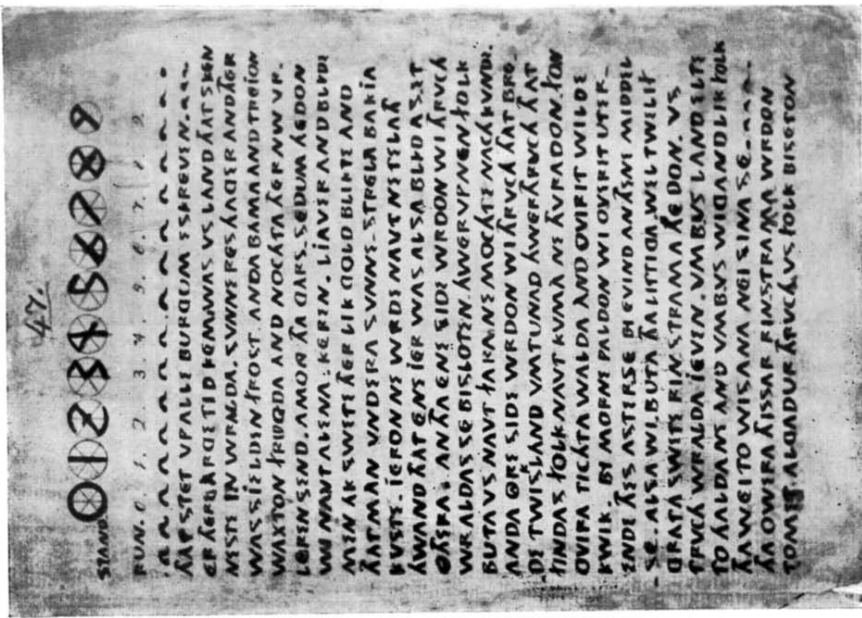 47.
STAND. 0 1 2 3 4 5 6 7 8 9
RUN. 0. 1. 2. 3. 4. 5. 6. 7. 8. 9.
THAT STET VP ALLE BURGUM ESKREVEN.
ER THER ARGE TID KEM WAS VS LAND THAT SKEN
NESTE IN WRALDA. SVNNE RES HAGER AND THER
WAS SIELDEN FROST. ANDA BAMA AND TREION
WAXTON FRUGDA AND NOCHTA THER NW VR.
LEREN SEND. AMONG THA GARS. SEDUM HEDON
WI NAVT ALENA. KEREN. LIAVER AND BLIDE
MEN AK SWETE THER LIK GOLD BLIKTE AND
THAT MAN VNDERA SVNNE. STRELA BAKIA
KVSTE. IERON NE WRDE NAVT NE TELATH
HWAND THAT ENE IER WAS ALSA BLID AS ET
OTHERA. AN THA ENE SIDE WRDON WI THRVCH
WRALDAS SE BISLOTEN. HWERVP NEN FOLK
BUTA VS NAVT FARA NE MOCHTE NACH KVNDE.
ANDA ORE SIDE WRDON WI THRVCH THAT BRE
DE TWISKLAND VMTUNAD HWERTHRVCH THAT
FINDAS FOLK NAVT KVMA NE THVRADON FON
OVIRA TICHTA WALDA AND OVIR IT WILDE
KWIK. BI MORNE PALDON WI OVIR IT UTER
ENDE THES ASTERSE BI EVIND AN THENE MIDDEL
SE. ALSA WI BUTA THA LITTIGA WEL TWELIF
GRATA SWETE RINSTRAMA HEDON. VS
THRVCH WRALDA IEVEN. VMB VS LAND ELTE
TO HALDANE AND VMB VS WIGANDLIK FOLK
THA WEI TO WISANA NEI SINA SE.
THA OWERA THISSAR RINSTRAMA WRDON
TOMET ALGADUR THRVCH VS FOLK BISETON